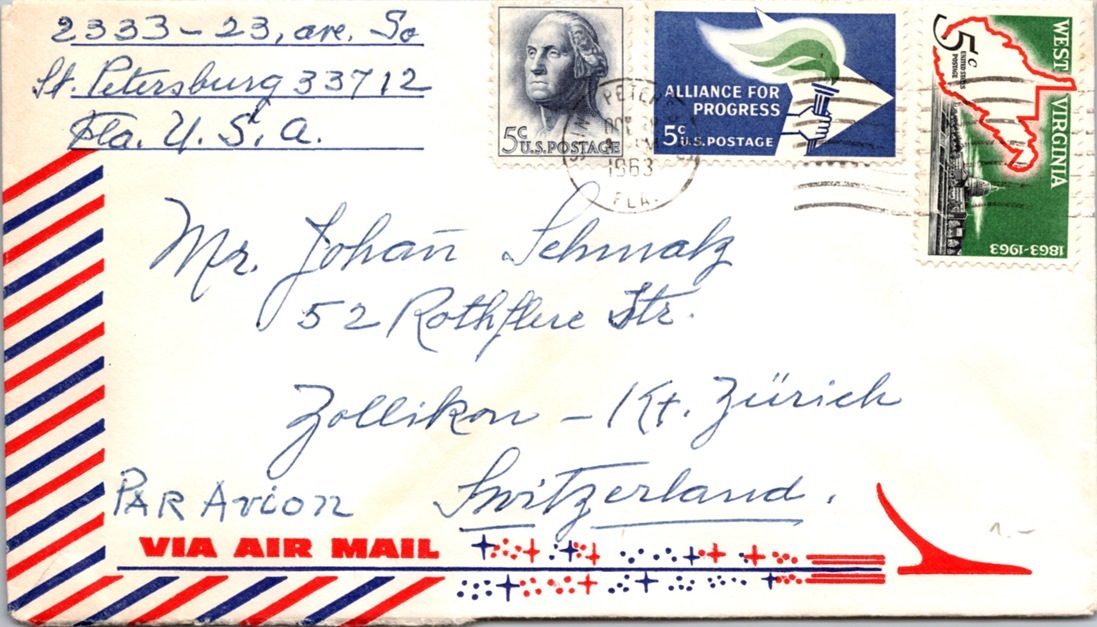 2333-23, ave. So
St. Petersburg 33712
Fla. U.S.A.
5c U.S.POSTAGE
ALLIANCE FOR
PROGRESS
5c U.S. POSTAGE
WEST VIRGINIA
5c
UNITED STATES
POSTAGE
1863-1963
1963
FLA.
Mr. Johan Schmalz
52 Rothflue Str.
Zollikon - Kt. Zürich
Switzerland.
PAR AVION
VIA AIR MAIL